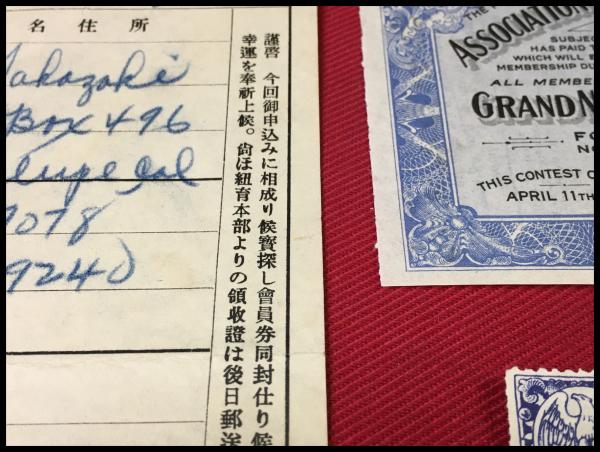 名住所
Box 496
Cal
9240
謹啓 今回御申込みに相成り候寶探し會員券同封仕り候
幸運を奉祈上候。尙ほ紐育本部よりの領收證は後日郵送
ASSOCIATION
SUBJE
HAS PAID T
WHICH WILL E
MEMBERSHIP DU
ALL MEMBE
GRAND N
FO
NO
THIS CONTEST C
APRIL 11TH